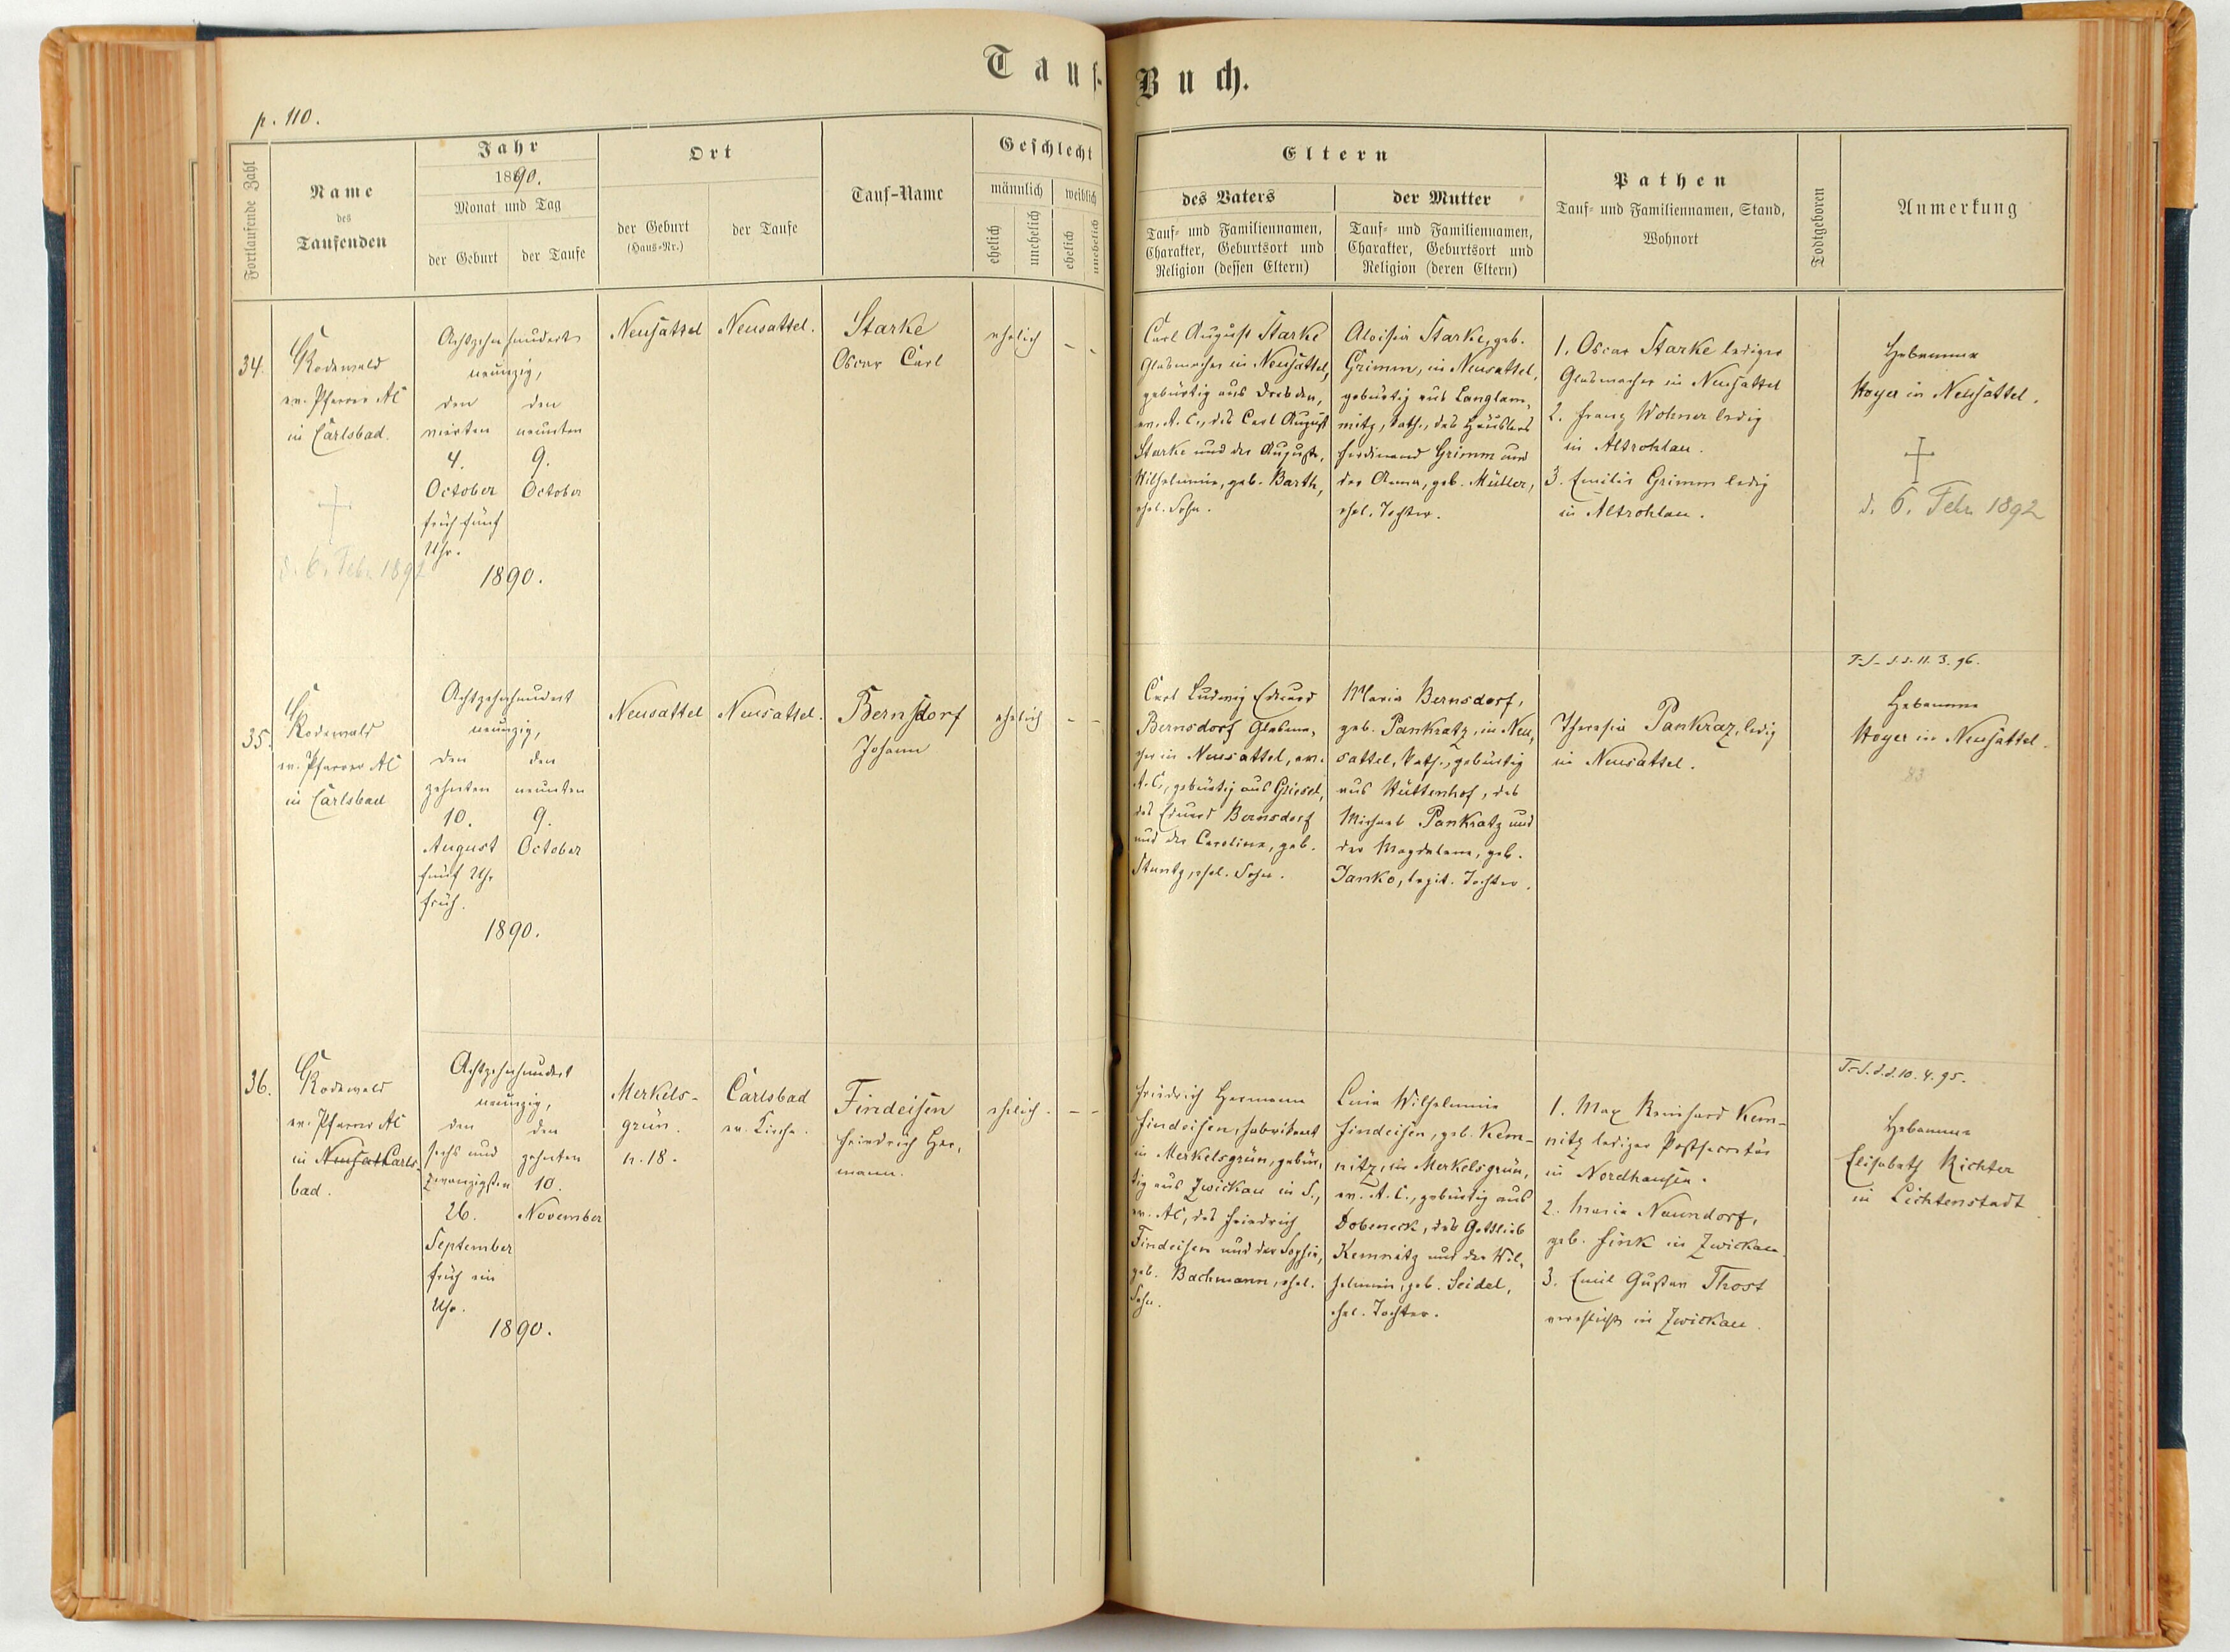 Tauf-Buch.
p. 110.
Fortlaufende Zahl
Name
des
Taufenden
Jahr
1890.
Monat und Tag
der Geburt
der Taufe
Ort
der Geburt
(Haus-Nr.)
der Taufe
Tauf-Name
Geschlecht
männlich
weiblich
ehelich
unehelich
ehelich
unehelich
Eltern
des Vaters
Tauf- und Familiennamen,
Charakter, Geburtsort und
Religion (dessen Eltern)
der Mutter
Tauf- und Familiennamen,
Charakter, Geburtsort und
Religion (deren Eltern)
Pathen
Tauf- und Familiennamen, Stand,
Wohnort
Todtgeboren
Anmerkung
34.
Rodewald
ev. Pfarrer AC
in Carlsbad.
d. 6. Feb. 1892
Achtzehnhundert
neunzig,
den
vierten
4.
October
früh fünf
Uhr.
den
neunten
9.
October
1890.
Neusattel
Neusattel.
Starke
Oscar Carl
ehelich
- -
Carl August Starke
Glasmacher in Neusattel,
gebürtig aus Dresden,
ev. A. C., des Carl August
Starke und der Auguste,
Wilhelmine, geb. Barth,
ehel. Sohn.
Aloisia Starke, geb.
Grimm, in Neusattel,
gebürtig aus Langlam-
mitz, kath., des Häuslers
Ferdinand Grimm und
der Anna, geb. Müller,
ehel. Tochter.
1. Oscar Starke lediger
Glasmacher in Neusattel
2. Franz Wohner ledig
in Altrohlau.
3. Emilie Grimm ledig
in Altrohlau.
Hebamme
Hoyer in Neusattel.
d. 6. Febr 1892
35.
Rodewald
ev. Pfarrer AC
in Carlsbad
Achtzehnhundert
neunzig,
den
zehnten
10.
August
fünf Uhr
früh.
den
neunten
9.
October
1890.
Neusattel
Neusattel.
Bernsdorf
Johann
ehelich
- -
Carl Ludwig Eduard
Bernsdorf Glasma-
cher in Neusattel, ev.
A. C., gebürtig aus Griesel,
des Eduard Bernsdorf
und der Caroline, geb.
Stuntz, ehel. Sohn.
Maria Bernsdorf,
geb. Pankratz, in Neu-
sattel, kath., gebürtig
aus Hüttenhof, des
Michael Pankratz und
der Magdalena, geb.
Janko, legit. Tochter.
Theresia Pankraz, ledig
in Neusattel.
T-S- d.d. 11. 3. 96.
Hebamme
Hoyer in Neusattel.
83
36.
Rodewald
ev. Pfarrer AC
in Neusatt Carls-
bad.
Achtzehnhundert
neunzig,
den
sechs und
zwanzigsten
26.
September
früh ein
Uhr.
den
zehnten
10.
November
1890.
Merkels-
grün.
n. 18.
Carlsbad
ev. Kirche.
Findeisen
Friedrich Her-
mann.
ehelich.
- -
Friedrich Hermann
Findeisen, Fabrikant
in Merkelsgrün, gebür-
tig aus Zwickau in S.,
ev. AC, des Friedrich
Findeisen und der Sophie,
geb. Bachmann, ehel.
Sohn.
Lina Wilhelmine
Findeisen, geb. Kem-
nitz, in Merkelsgrün,
ev. A. C., gebürtig aus
Dobeneck, des Gottlieb
Kemnitz und der Wil-
helmine, geb. Seidel,
ehel. Tochter.
1. Max Reinhard Kem-
nitz lediger Postsecretär
in Nordhausen.
2. Maria Naundorf,
geb. Fink in Zwickau.
3. Emil Gustav Thost
verehlicht in Zwickau.
T-S. d.d. 10. 4. 95.
Hebamme
Elisabeth Richter
in Lichtenstadt